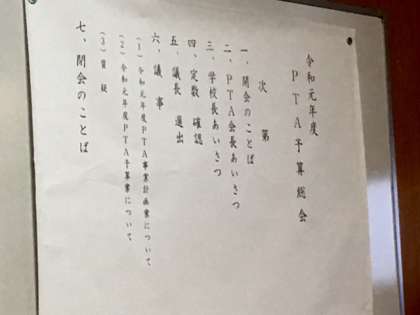 令和元年度
PTA予算総会
次第
一、開会のことば
二、PTA会長あいさつ
三、学校長あいさつ
四、定数確認
五、議長選出
六、議事
(1)令和元年度PTA事業計画案について
(2)令和元年度PTA予算案について
(3)質疑
七、閉会のことば